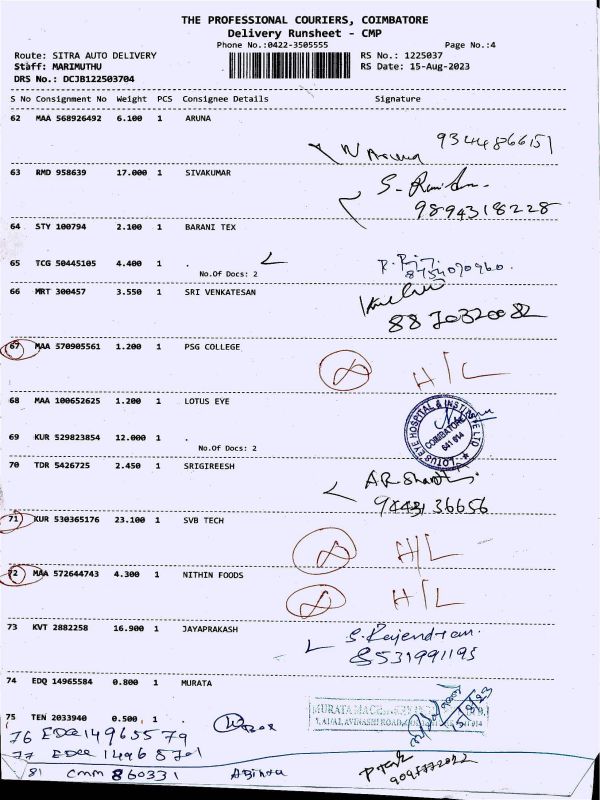 THE PROFESSIONAL COURIERS, COIMBATORE
Delivery Runsheet - CMP
Phone No.:0422-3505555 Page No.:4
Route: SITRA AUTO DELIVERY RS No.: 1225037
Staff: MARIMUTHU RS Date: 15-Aug-2023
DRS No.: DCJB122503704
S No Consignment No Weight PCS Consignee Details Signature
62 MAA 568926492 6.100 1 ARUNA
N Aruna 9344866151
63 RMD 958639 17.000 1 SIVAKUMAR
9894318228
64 STY 100794 2.100 1 BARANI TEX
65 TCG 50445105 4.400 1 .
No.Of Docs: 2
8754070960.
66 MRT 300457 3.550 1 SRI VENKATESAN
8870320082
67 MAA 570905561 1.200 1 PSG COLLEGE
H/L
68 MAA 100652625 1.200 1 LOTUS EYE
LOTUS EYE HOSPITAL & INSTITUTE LTD
COIMBATORE
641 014
69 KUR 529823854 12.000 1 .
No.Of Docs: 2
70 TDR 5426725 2.450 1 SRIGIREESH
9443136656
71 KUR 530365176 23.100 1 SVB TECH
H/L
72 MAA 572644743 4.300 1 NITHIN FOODS
H/L
73 KVT 2882258 16.900 1 JAYAPRAKASH
S. Rajendran.
8531991195
74 EDQ 14965584 0.800 1 MURATA
MURATA
AVINASHI ROAD
75 TEN 2033940 0.500 1
76 EDQ 14965579
77 EDQ 14968701
81 CMM 860331